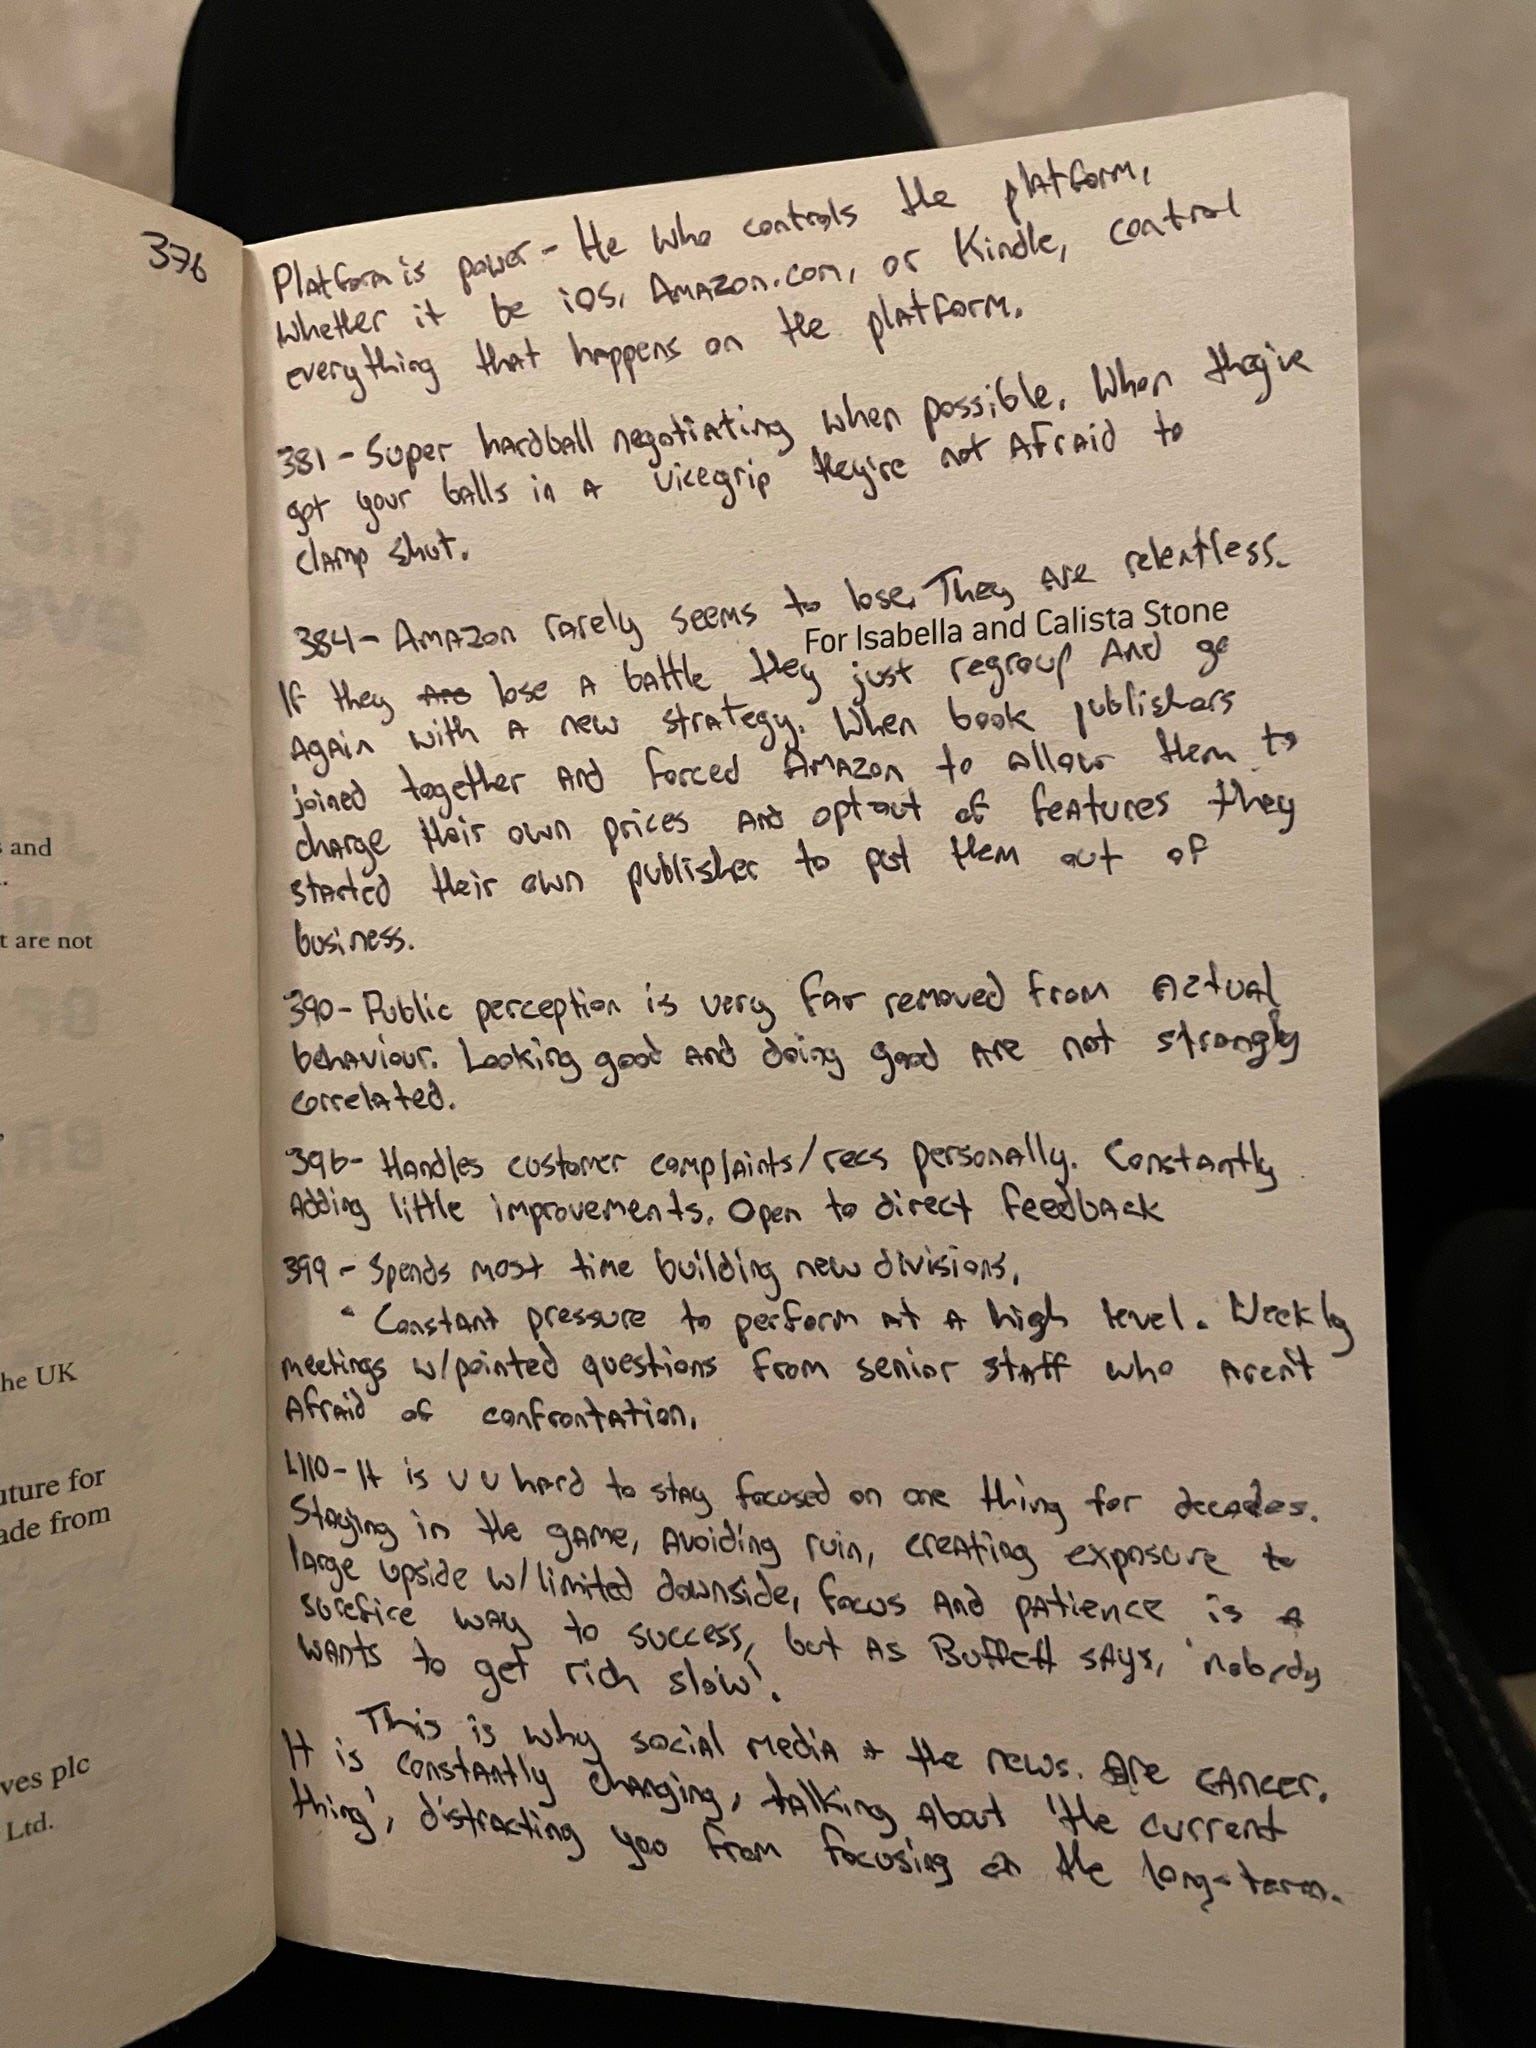 376
Platform is power - He who controls the platform,
whether it be iOS, Amazon.com, or Kindle, control
everything that happens on the platform.
381 - Super hardball negotiating when possible. When they've
got your balls in a vicegrip they're not afraid to
clamp shut.
384 - Amazon rarely seems to lose. They are relentless.
For Isabella and Calista Stone
If they are lose a battle they just regroup and go
again with a new strategy. When book publishers
joined together and forced Amazon to allow them to
charge their own prices and opt out of features they
started their own publisher to put them out of
business.
390 - Public perception is very far removed from actual
behaviour. Looking good and doing good are not strongly
correlated.
396 - Handles customer complaints/recs personally. Constantly
adding little improvements. Open to direct feedback
399 - Spends most time building new divisions.
• Constant pressure to perform at a high level. Weekly
meetings w/pointed questions from senior staff who aren't
afraid of confrontation.
410 - It is v v hard to stay focused on one thing for decades.
Staying in the game, avoiding ruin, creating exposure to
large upside w/limited downside, focus and patience is a
surefire way to success, but as Buffett says, 'nobody
wants to get rich slow'.
This is why social media + the news. Are cancer.
It is constantly changing, talking about 'the current
thing', distracting you from focusing on the long-term.
s and
t are not
he UK
uture for
ade from
ves plc
Ltd.